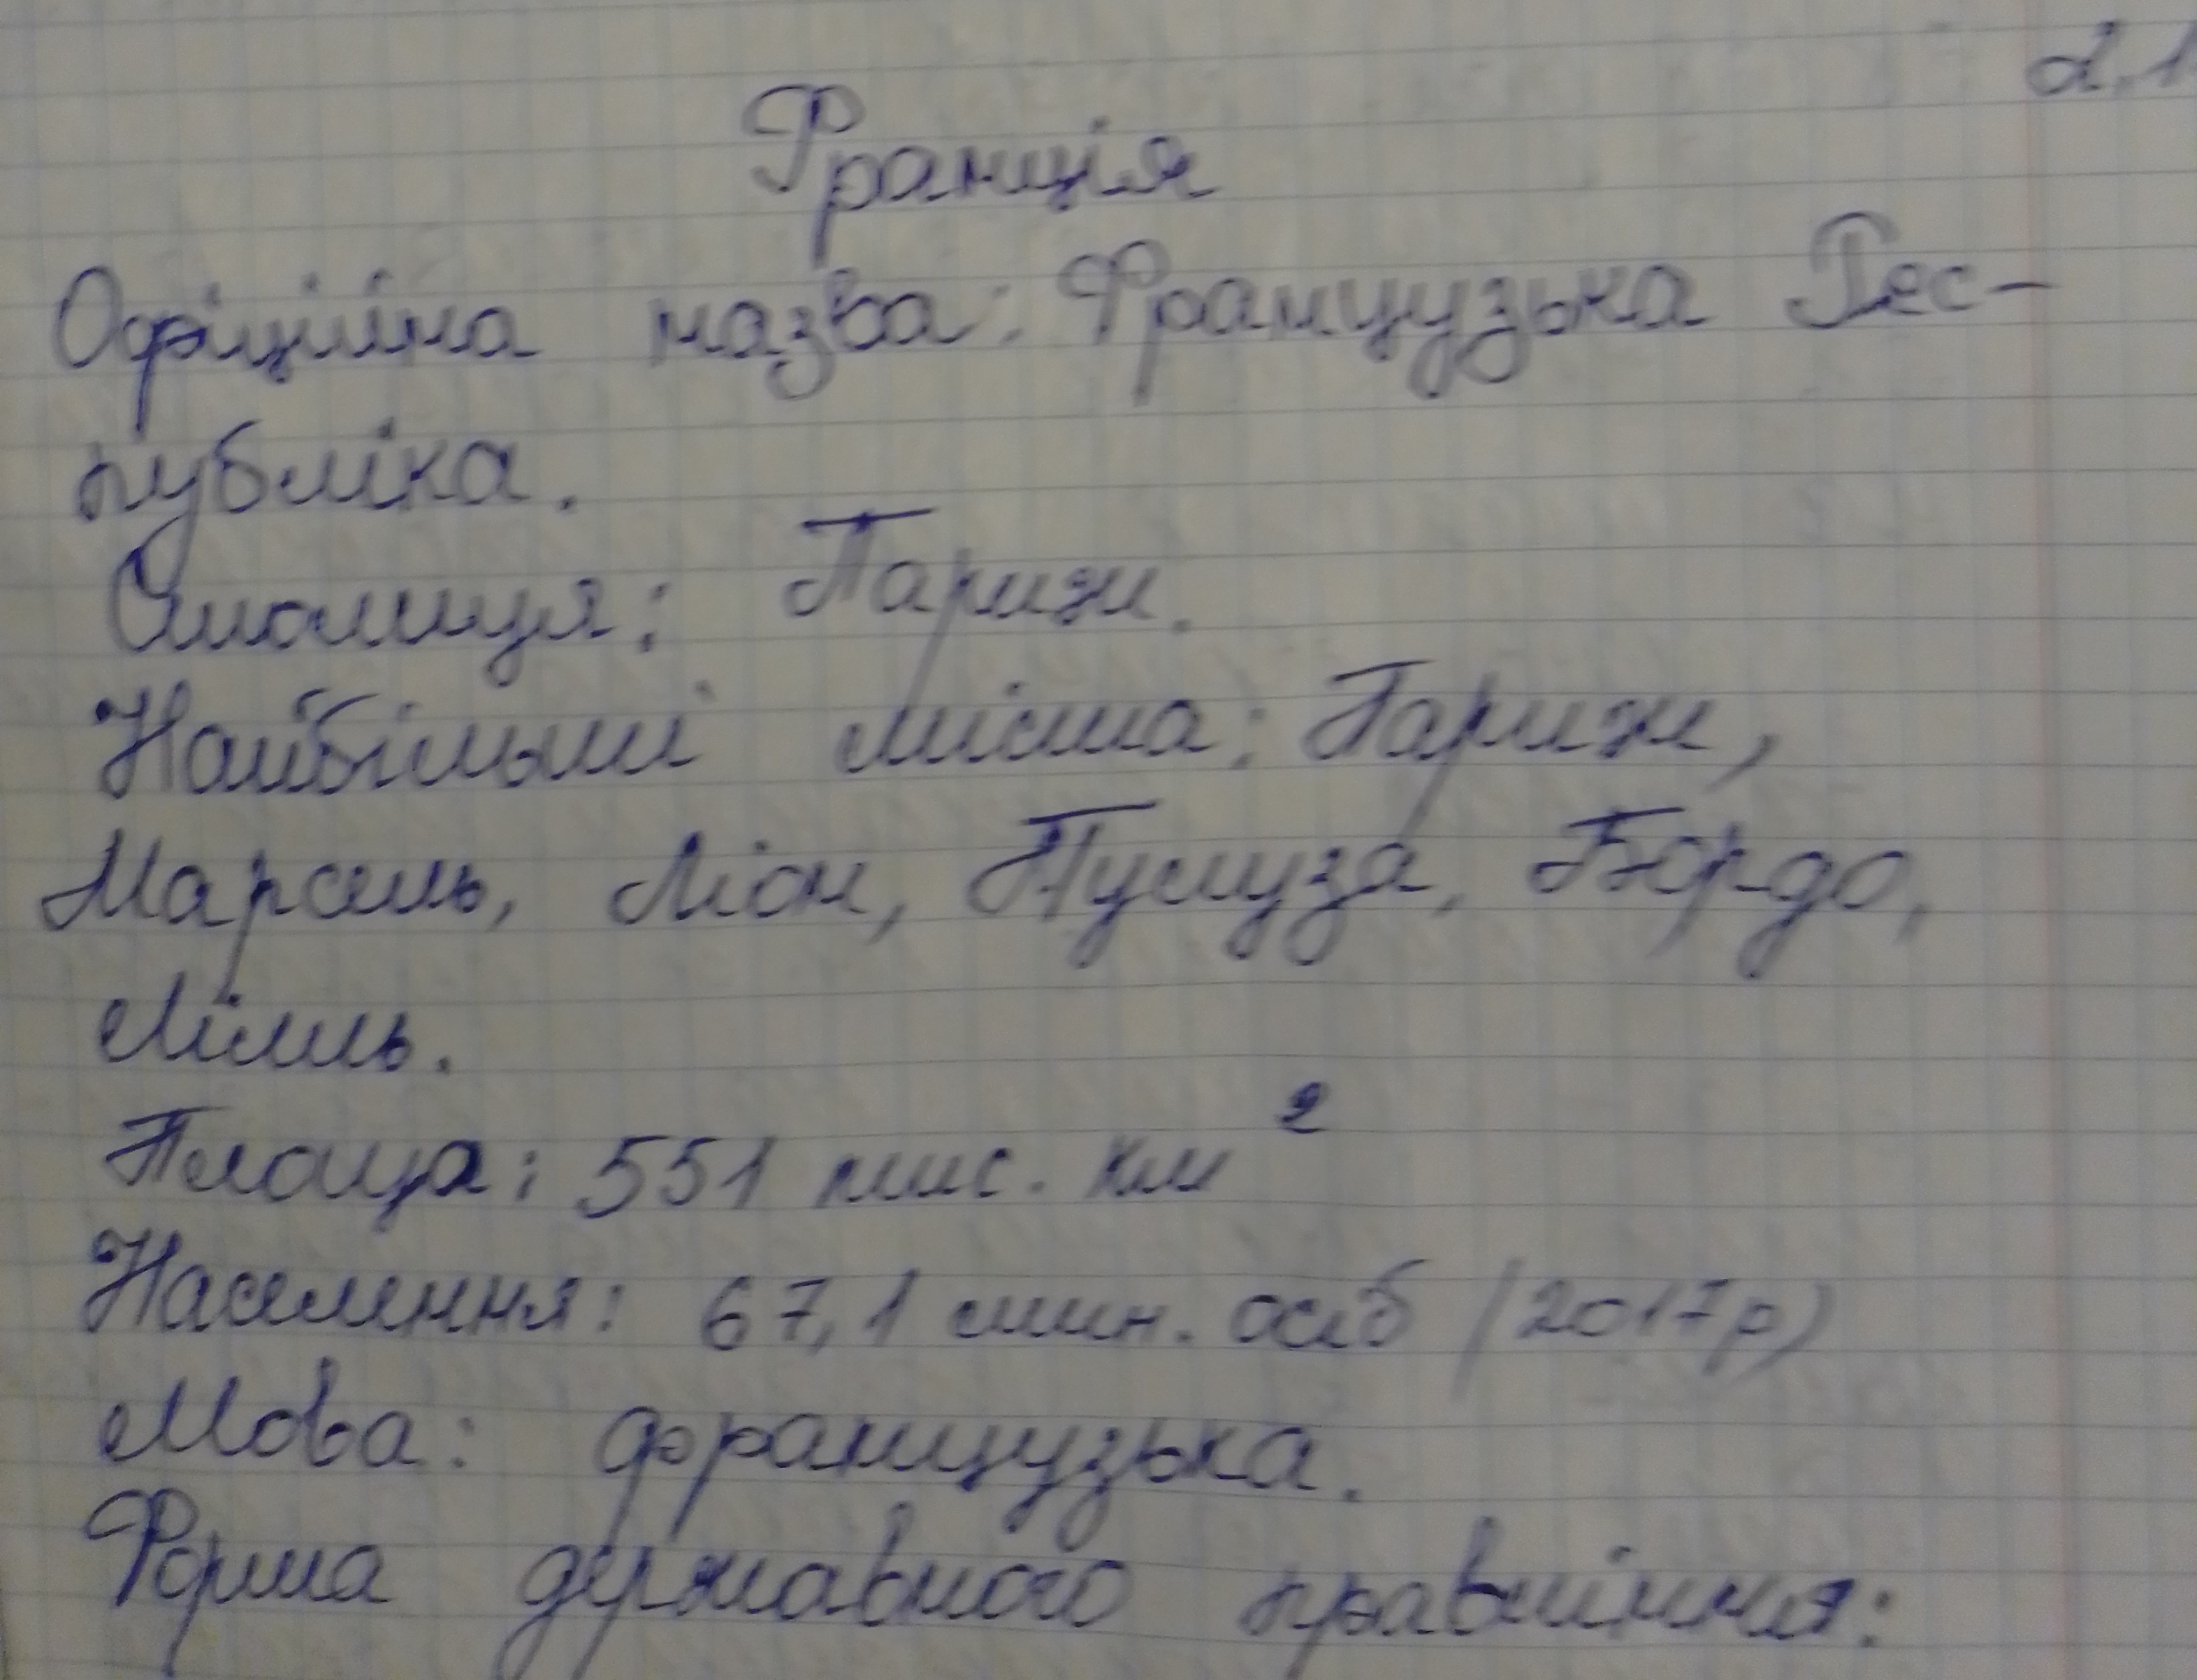 2.1
Франція
Офіційна назва: Французька Рес-
публіка.
Столиця: Париж.
Найбільші міста: Париж,
Марсель, Ліон, Тулуза, Бордо,
Лілль.
Площа: 551 тис. км²
Населення: 67,1 млн. осіб (2017р)
Мова: французька.
Форма державного правління: